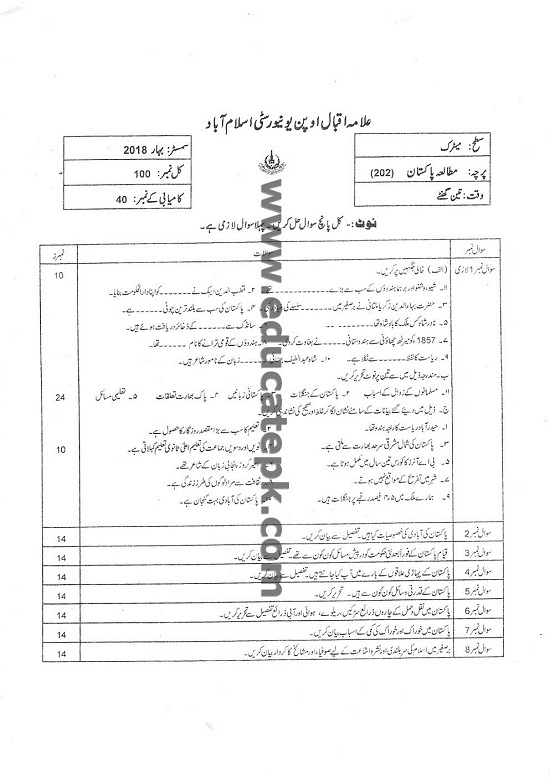 علامہ اقبال اوپن یونیورسٹی اسلام آباد
سطح: میٹرک
پرچہ: مطالعہ پاکستان (202)
وقت: تین گھنٹے
سمسٹر: بہار 2018
کل نمبر: 100
کامیابی کے نمبر: 40
www.ieducatepk.com
نوٹ:- کل پانچ سوال حل کریں۔ پہلا سوال لازمی ہے۔
سوال نمبر نمبرز
سوال نمبر 1 لازمی (الف) خالی جگہیں پر کریں۔ 10
۱۔ شیو، وشنو اور برہما ہندوؤں کے سب سے بڑے ۔۔۔ تھے ۲۔ قطب الدین ایبک نے ۔۔۔ کو اپنا دارالحکومت بنایا۔
۳۔ حضرت بہاء الدین زکریا ملتانی نے برصغیر میں ۔۔۔ سلسلے کی ۴۔ پاکستان کی سب سے بلند ترین چوٹی ۔۔۔ ہے۔
۵۔ نادر شاہ کس ملک کا بادشاہ تھا۔ ۔۔۔ ۶۔ سانڈک سے ۔۔۔ کے ذخائر دریافت ہوئے ہیں۔
۷۔ 1857 کو میرٹھ چھاؤنی سے ہندوستانی ۔۔۔ نے بغاوت کر دی۔ ۸۔ ہندوؤں کے قومی ترانے کا نام ۔۔۔ تھا۔
۹۔ ریاست کا لفظ ۔۔۔ سے نکلا ہے۔ ۱۰۔ شاہ عبداللطیف بھٹائی ۔۔۔ زبان کے نامور شاعر ہیں۔
ب۔ مندرجہ ذیل میں سے تین پر نوٹ تحریر کریں۔
۱۔ مسلمانوں کے زوال کے اسباب ۲۔ پاکستان کے جنگلات ۳۔ پاکستانی زبانیں ۴۔ پاک بھارت تعلقات ۵۔ تعلیمی مسائل 24
ج۔ ذیل میں دیئے گئے بیانات کے سامنے نشان لگا کر غلط اور صحیح کی نشاندہی کریں۔
۱۔ حیدرآباد ریاست کا راجہ ہندو تھا۔ ۲۔ تعلیم کا سب سے بڑا مقصد روزگار کا حصول ہے۔
۳۔ پاکستان کی شمال مشرقی سرحد بھارت سے ملتی ہے۔ نویں اور دسویں جماعت کی تعلیم اعلیٰ ثانوی تعلیم کہلاتی ہے۔ 10
۵۔ بی اے آنرز کا کورس تین سال میں مکمل ہوتا ہے۔ پنجابی زبان کے شاعر تھے۔
۷۔ شہر میں تفریح کے مواقع نہیں ہوتے۔ ثقافت سے مراد لوگوں کی طرز زندگی ہے۔
۹۔ ہمارے ملک میں ۴۵ فیصد رقبے پر جنگلات ہیں۔ پاکستان کی آبادی بہت گنجان ہے۔
سوال نمبر 2 پاکستان کی آبادی کی خصوصیات کیا ہیں۔ تفصیل سے بیان کریں۔ 14
سوال نمبر 3 قیام پاکستان کے فوراً بعد نئی حکومت کو درپیش مسائل کون کون سے تھے۔ تفصیل سے بیان کریں۔ 14
سوال نمبر 4 پاکستان کے پہاڑی علاقوں کے بارے میں آپ کیا جانتے ہیں۔ تفصیل سے بیان کریں۔ 14
سوال نمبر 5 پاکستان کے قدرتی وسائل کون کون سے ہیں۔ تحریر کریں۔ 14
سوال نمبر 6 پاکستان میں نقل و حمل کے چاروں ذرائع سڑکیں، ریلوے، ہوائی اور آبی ذرائع تفصیل سے تحریر کریں۔ 14
سوال نمبر 7 پاکستان میں خوراک اور خوراک کی کمی کے اسباب بیان کریں۔ 14
سوال نمبر 8 برصغیر میں اسلام کی سربلندی اور نشر و اشاعت کے لیے صوفیاء اور مشائخ کا کردار بیان کریں۔ 14